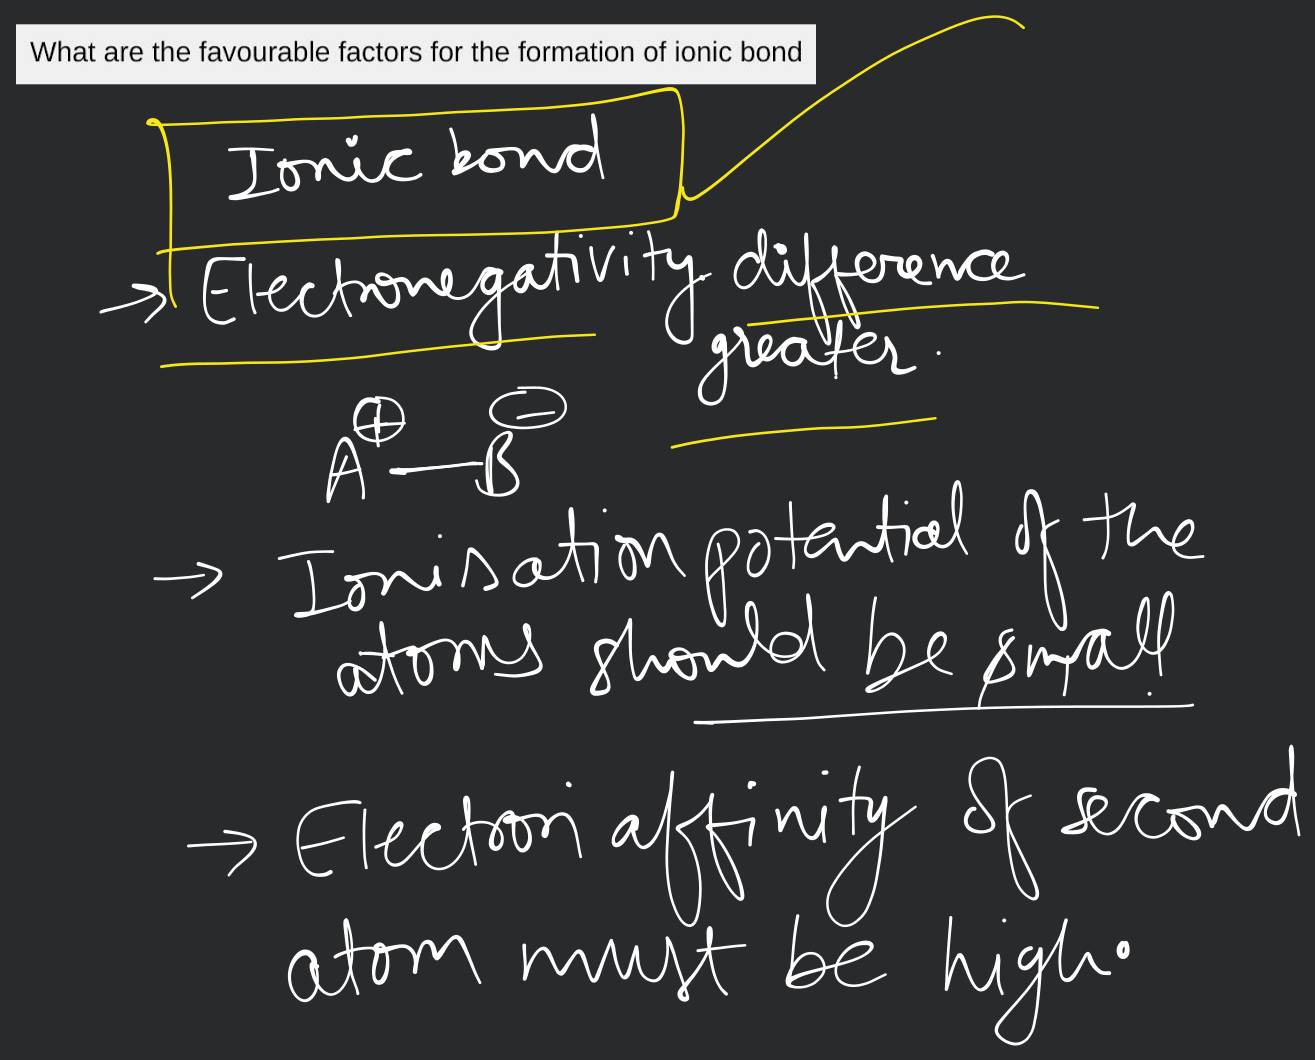 What are the favourable factors for the formation of ionic bond
Ionic bond
→ Electronegativity difference
greater.
A⊕—B⊖
→ Ionisation potential of the
atoms should be small.
→ Electron affinity of second
atom must be high.